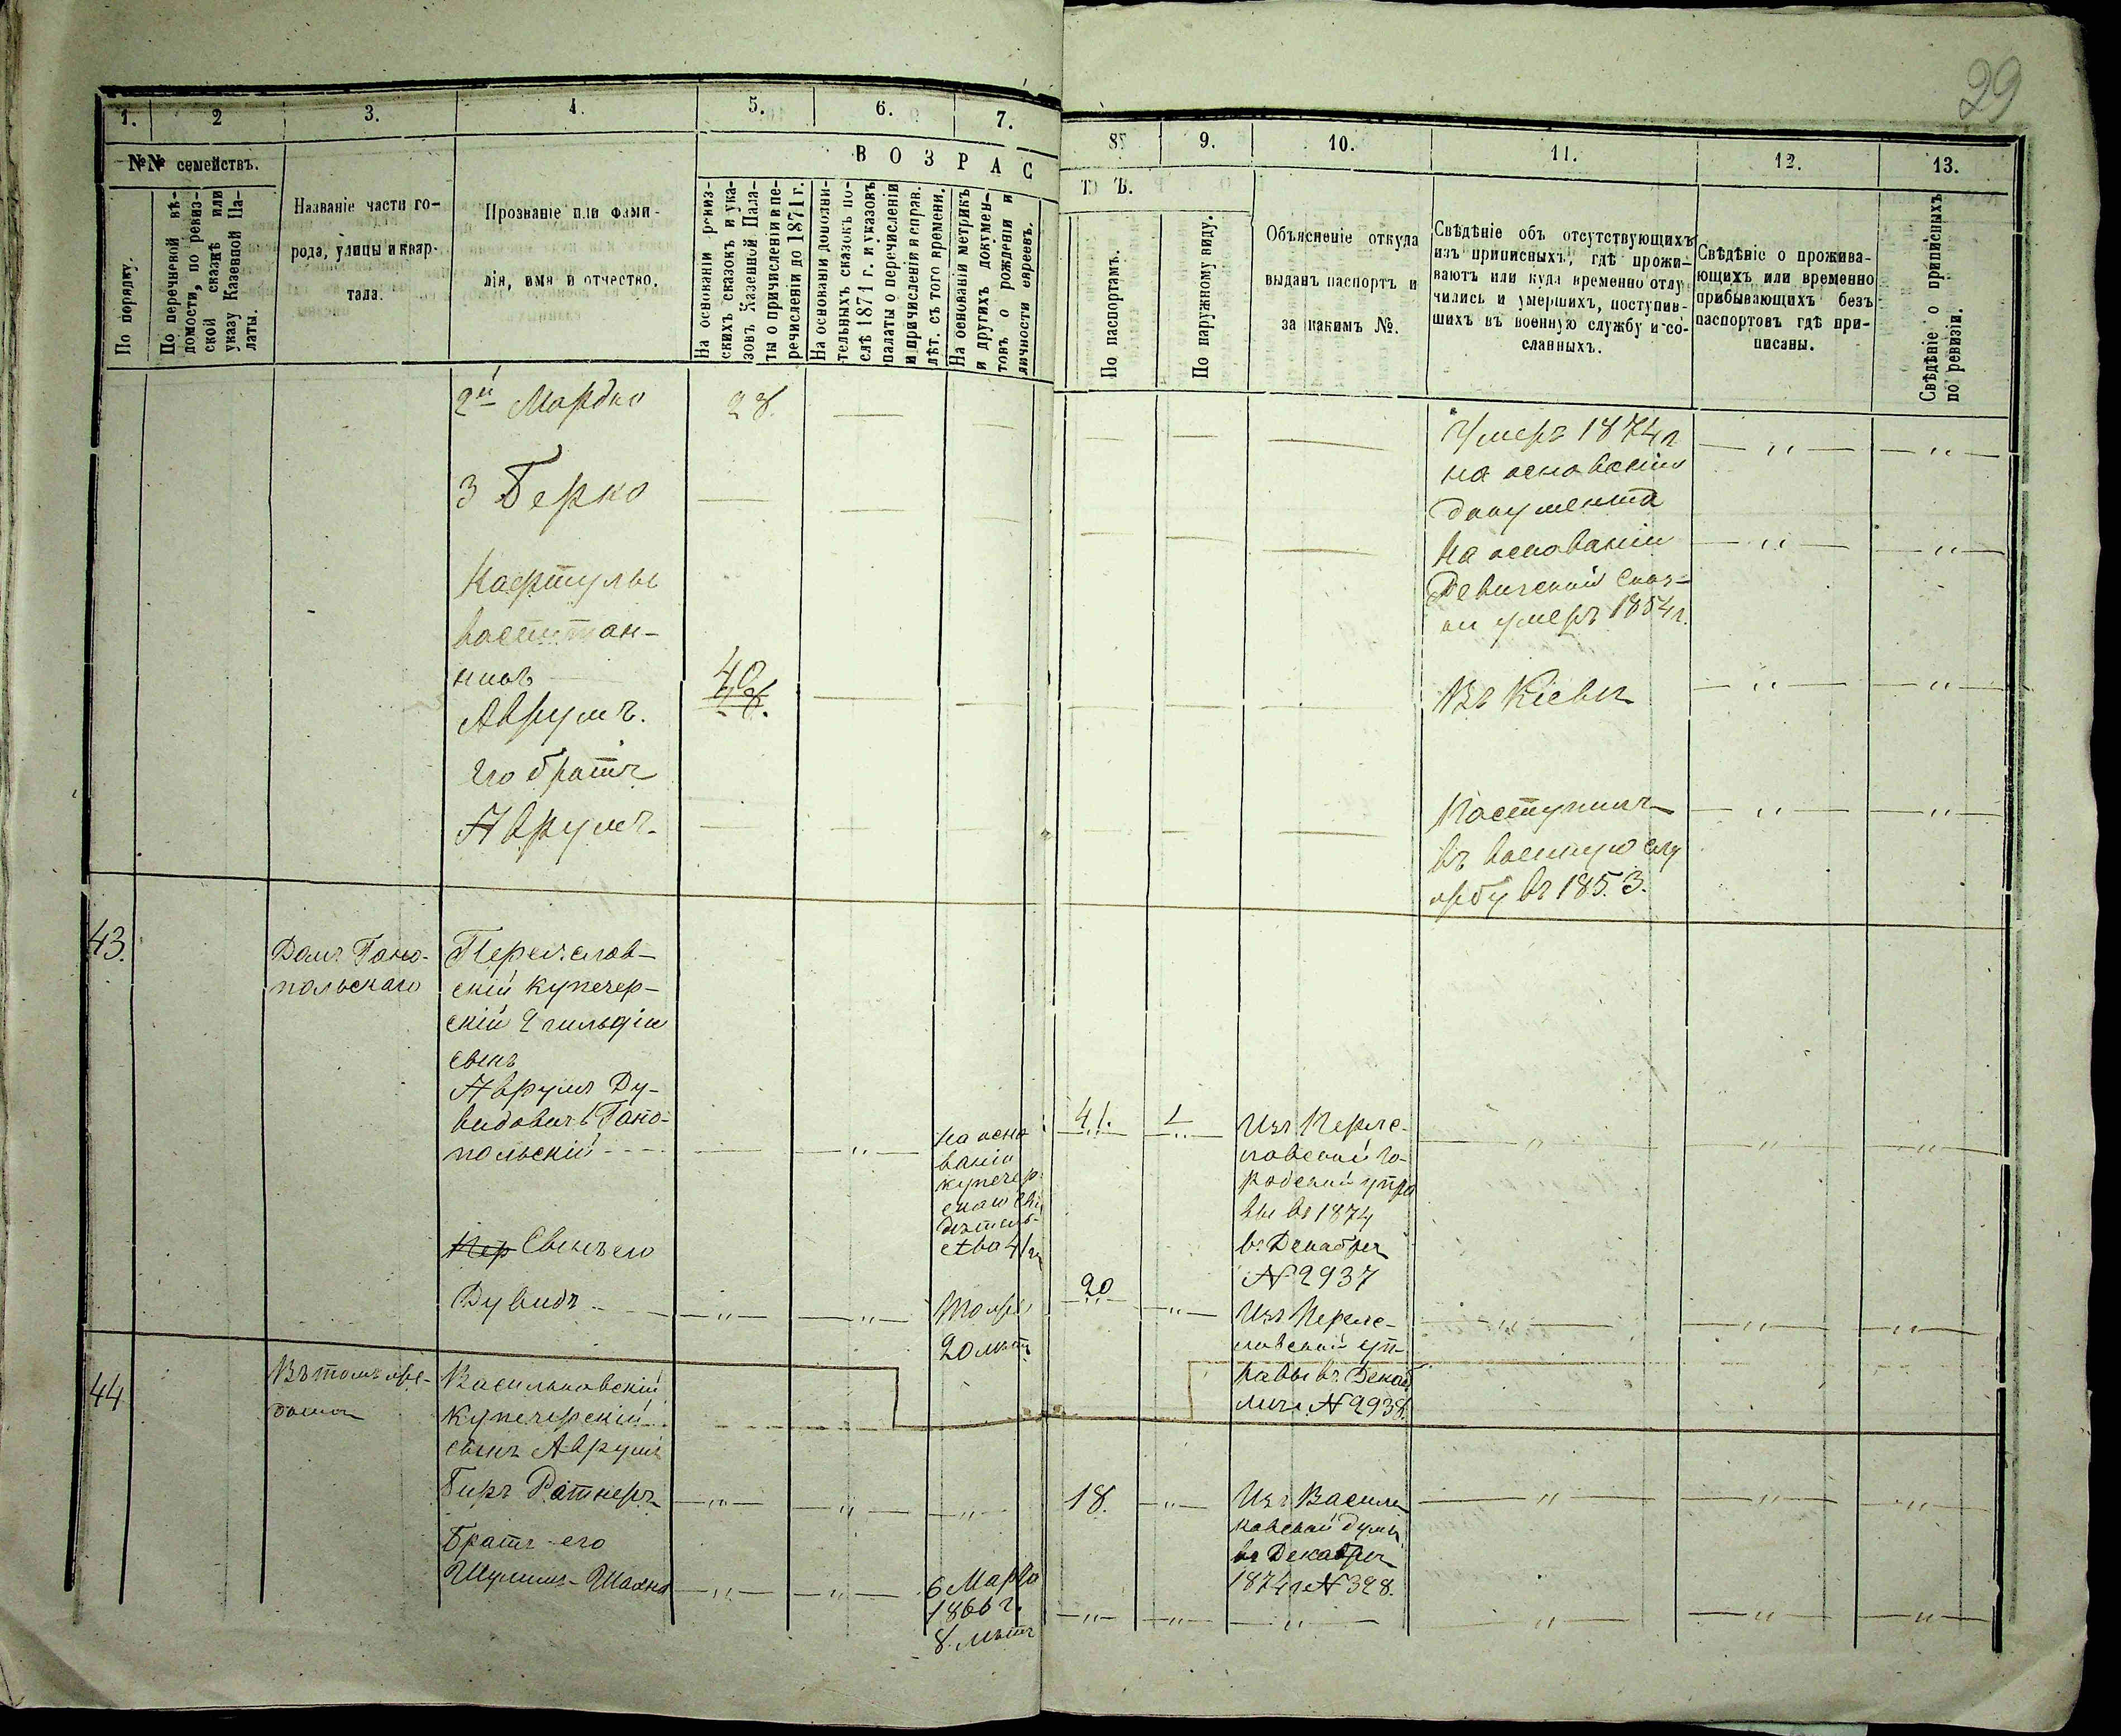 29
1. 2 3. 4. 5. 6. 7.
8. 9. 10. 11. 12. 13.
№№ семействъ.
По порядку.
По перечневой вѣ-
домости, по ревиз-
ской сказкѣ или
указу Казенной Па-
латы.
Названіе части го-
рода, улицы и квар-
тала.
Прозваніе или фами-
лія, имя и отчество.
ВОЗРАС
ТЪ.
На основаніи ревиз-
скихъ сказокъ и ука-
зовъ Казенной Пала-
ты о причисленіи и пе-
речисленіи до 1871 г.
На основаніи дополни-
тельныхъ сказокъ по-
слѣ 1871 г. и указовъ
палаты о перечисленіи
и причисленіи и справ.
лѣт. съ того времени.
На основаніи метрикъ
и другихъ докумен-
товъ о рожденіи и
личности евреевъ.
По паспортамъ.
По наружному виду.
Объясненіе откуда
выданъ паспортъ и
за какимъ №.
Свѣдѣніе объ отсутствующихъ
изъ приписныхъ, гдѣ прожи-
ваютъ или куда временно отлу
чились и умершихъ, поступив-
шихъ въ военную службу и со-
сланныхъ.
Свѣдѣніе о прожива-
ющихъ или временно
прибывающихъ безъ
паспортовъ гдѣ при-
писаны.
Свѣдѣніе о приписныхъ
по ревизіи.
2й Мордко
28.
Умеръ 1874 г
на основаніи
документа
3 Берко
На основаніи
Ревизской Сказ-
ки умеръ 1854 г.
воспитан-
никъ
Аврумъ.
40
Въ Кіевѣ
Его братъ
Аврумъ.
Поступилъ
въ военную слу
жбу въ 1853.
43.
Домъ Тано-
польскаго
Переяслав-
скій купечер-
скій 2 гильдіи
сынъ
Аврумъ Ду-
видовичъ Тано-
польскій
На осно
ваніи
купечер
скаго сви
дѣтель-
ства 41 г
41.
Изъ Перея-
лавской го-
родской упра
вы въ 1874
въ Декабрѣ
№ 2937
Пер Сынъ его
Дувидъ
Тоже
20 лѣтъ
20
Изъ Перея-
лавской уп-
равы въ Декаб
№ 2938.
44
Въ томъ же-
домѣ
Васильковскій
купечерскій
сынъ Аврумъ
Биръ Ратнеръ
18.
Изъ Василь
ковской думы
въ Декабрѣ
1874 г № 328.
Братъ его
Шулимъ-Шахна
6 Марта
1866 г.
8. лѣтъ